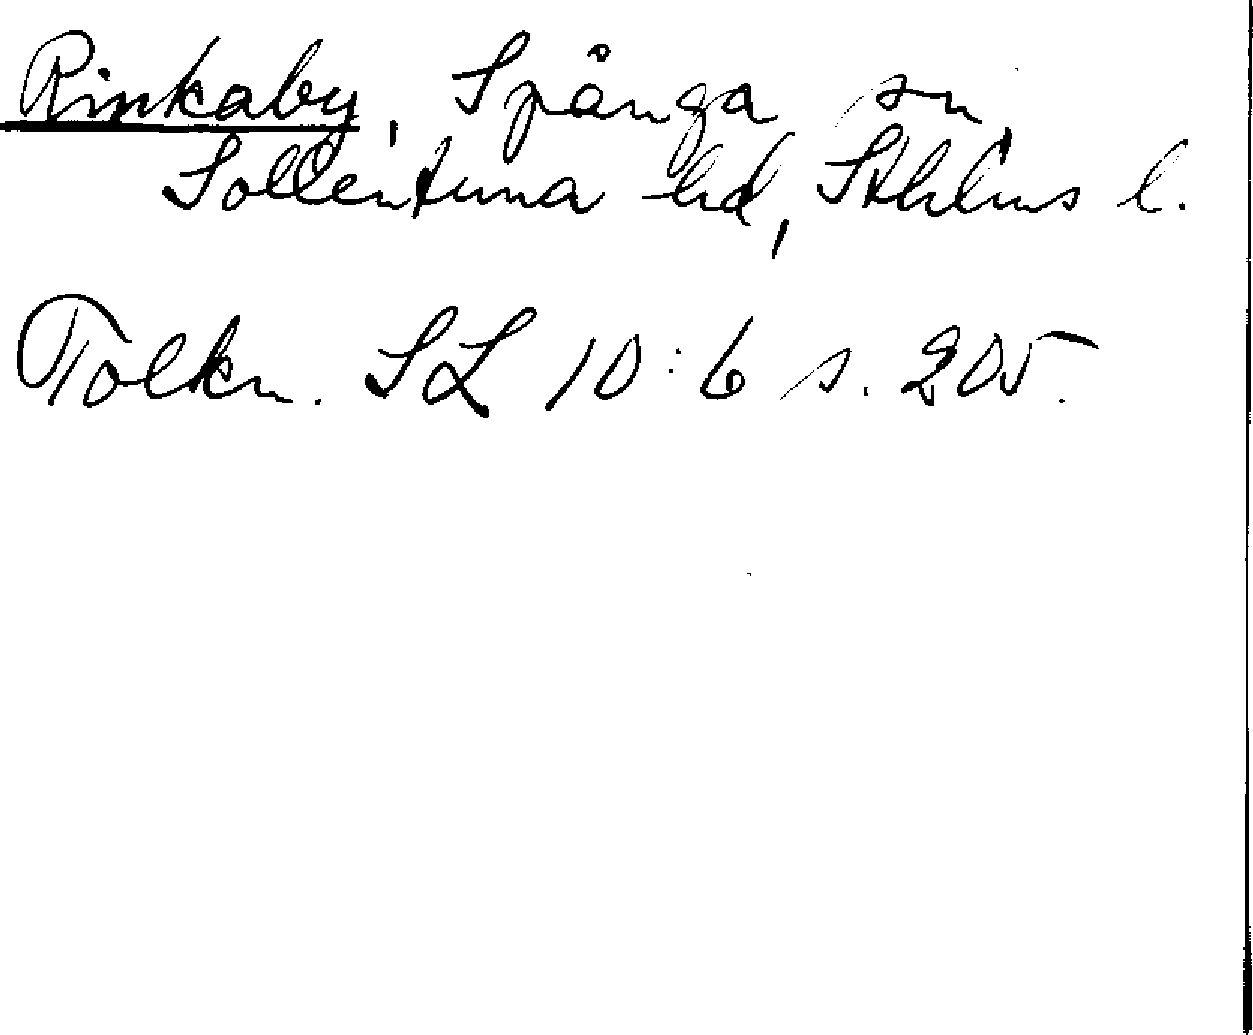 Rinkaby, Spånga sn
Sollentuna hd, Sthlms l.
Tolkn. SL 10:6 s. 205.